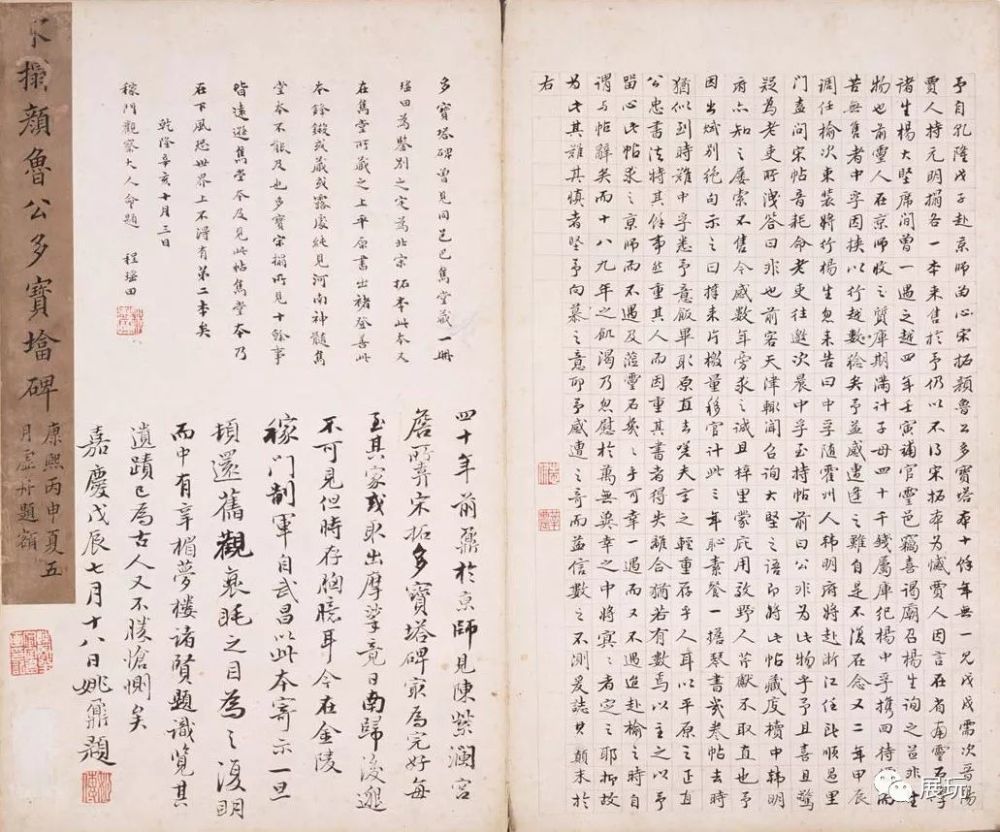 予自乾隆戊子赴京師留心宋拓顏魯公多寶塔本十餘年無一見戊戌需次晉陽
賈人持元明搨各一本來售於予仍以不得宋拓本為憾賈人因言在省有靈石學
諸生楊大堅席間曾一遇之越四年壬寅補官靈邑竊喜謁廟召楊生詢之荅非生
物也前靈人在京師收之質庫期滿計子母四十千錢屬庫紀楊中孚攜回待而
苦無售者中孚因挾以行越數稔矣予益感遭逢之難自是不復在念又二年甲辰
調任榆次束裝將行楊生忽來告曰中孚隨霍州人韩明府將赴浙江任此順邑里
門盍問宋帖音耗命老吏往邀次晨中孚至持帖前曰公非為此物乎予且喜且驚
疑為老吏所洩答曰非也前客天津輒聞召詢大堅之語即將此帖藏庋櫝中韩明
府亦知之屢索不售今感數年旁求之誠且梓里蒙庇用效野人芹獻不取直也予
因出贐別絕句示之曰揮來片楮量移官計此三年恥素餐一擔琴書幾卷帖去時
猶似到時難中孚悉予意飯畢取原直去嗟夫言之輕重存乎人耳以平原之正直
公忠書法特其餘事然重其人而因重其書者得失離合猶若有數焉以主之以予
留心此帖求之京師而不遇及蒞靈石幾乎可幸一遇而又不遇迨赴榆之時自
謂与帖辭矣而十八九年之飢渴乃忽慰於萬無冀幸之中將冥冥者定之耶抑故
為此其難其慎者堅予向慕之意耶予感遭之奇而益信數之不測爰誌其顛末於
右
多寶塔碑曾見同邑巴雋堂藏一冊
瑤田為鑒別之定為北宋拓本此本又
在雋堂所藏之上平原書出褚登善此
本鋒鎩或藏或露處純見河南神髓雋
堂本不能及也多寶宋搨所見十餘事
皆遠遜雋堂本及見此帖雋堂本乃
在下風恐世界上不得有第二本矣
乾隆辛亥十月三日
稼門觀察大人命題 程瑤田
四十年前鼐於京師見陳紫瀾宮
詹所弆宋拓多寶塔碑最為完好每
至其家或取出摩挲竟日南歸後遂
不可見但時存胸臆耳今在金陵
稼門制軍自武昌以此本寄示一旦
頓還舊觀衰眊之目為之復明
而中有辜楣夢樓諸賢題識覽其
遺蹟已為古人又不勝愴惻矣
嘉慶戊辰七月十八日姚鼐題
宋搨顏魯公多寶塔碑
康熙丙申夏五
月虛舟題額
展玩